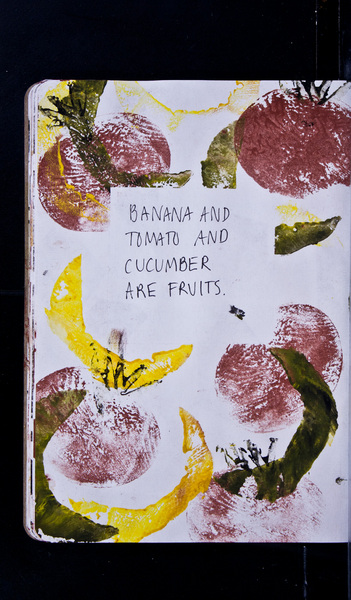 BANANA AND
TOMATO AND
CUCUMBER
ARE FRUITS.